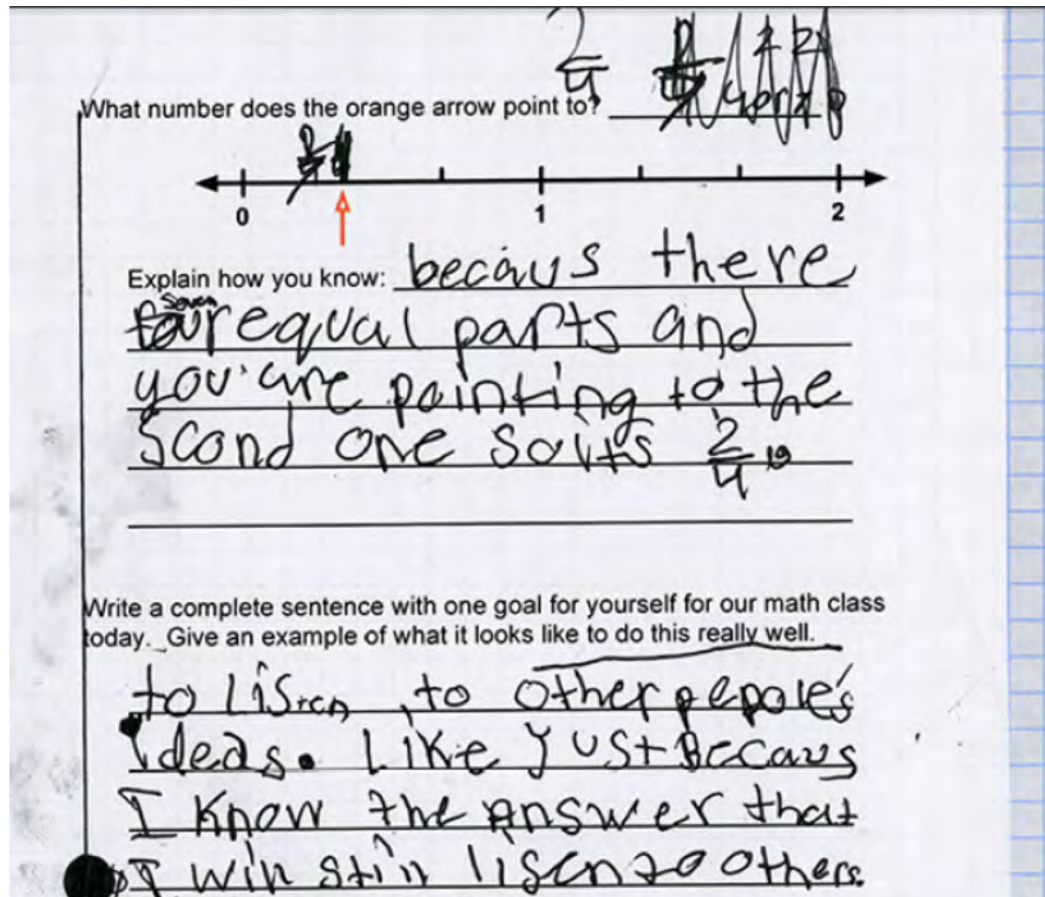 2/4
What number does the orange arrow point to?
0 1 2
Explain how you know: becaus there
seven
four equal parts and
you are pointing to the
scond one so its 2/4
Write a complete sentence with one goal for yourself for our math class
today. Give an example of what it looks like to do this really well.
to Listen to other pepole's
ideas. Like Just Becaus
I know the Answer that
I will still lisen to others.